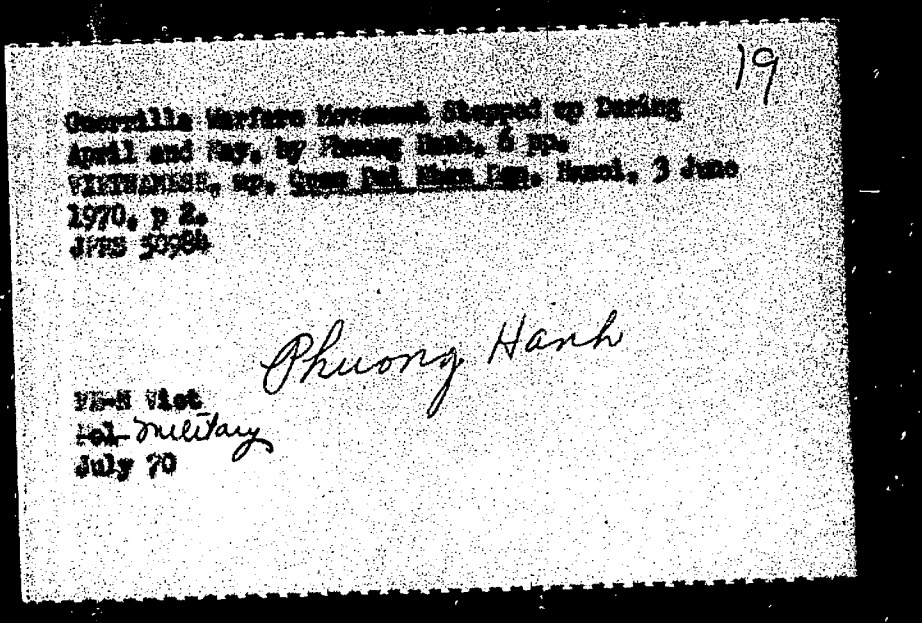 19
Guerrilla Warfare Movement Stepped up During
April and May, by Phuong Hanh, 6 pp.
VIETNAMESE, np, Quan Doi Nhan Dan, Hanoi, 3 June
1970, p 2.
JPRS 50984
Phuong Hanh
FE-N Viet
Pol-military
July 70